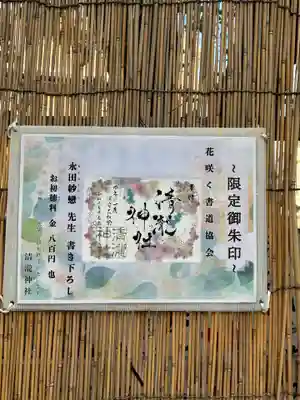 ~限定御朱印~
花咲く書道協会
奉拝
清瀧
神社
永田紗戀 先生 書き下ろし
お初穂料 金 八百円 也
清瀧神社